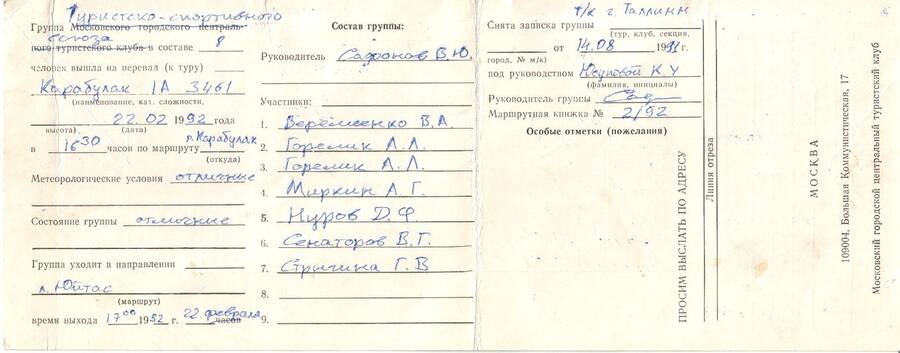 Туристско-спортивного
Группа Московского городского централь-
союза
ного туристского клуба в составе 8
человек вышла на перевал (к туру)
Карабулак 1А 3461
(наименование, кат. сложности,
22.02 1992 года
высота) (дата)
в 16 30 часов по маршруту л. Карабулак
(откуда)
Метеорологические условия отличные
Состояние группы отличные
Группа уходит в направлении
л. Юйтас
(маршрут)
время выхода 17 00 1992 г. 22 февраля
часов
Состав группы:
Руководитель Сафонов В.Ю.
Участники:
1. Веремеенко В.А.
2. Горелик А.Л.
3. Горелик А.Л.
4. Миркин А.Г.
5. Нуров Д.Ф.
6. Сенаторов В.Г.
7. Стригина Г.В
8.
9.
т/к г. Таллинн
Снята записка группы
(тур, клуб, секции,
от 14.08 1991 г.
город, № м/к)
под руководством Юсуповой К.У
(фамилия, инициалы)
Руководитель группы
Маршрутная книжка № 2/92
Особые отметки (пожелания)
ПРОСИМ ВЫСЛАТЬ ПО АДРЕСУ
Линия отреза
МОСКВА
109004, Большая Коммунистическая, 17
Московский городской центральный туристский клуб